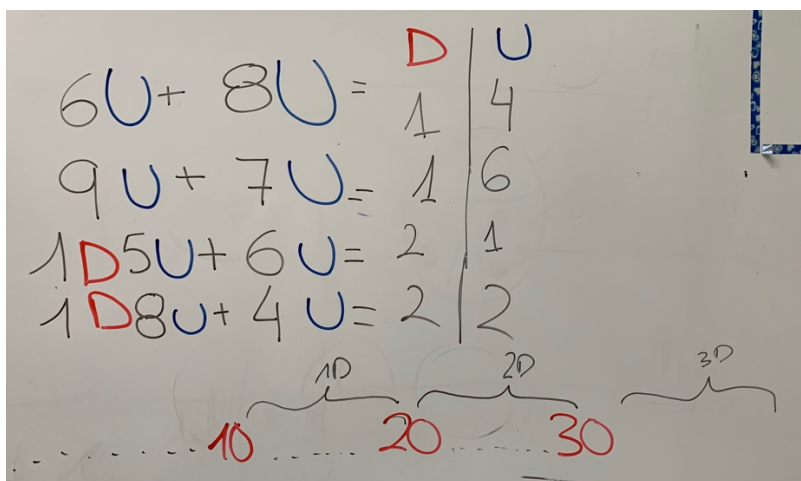 D | U
6U + 8U = 1 | 4
9U + 7U = 1 | 6
1D5U + 6U = 2 | 1
1D8U + 4U = 2 | 2
1D 2D 3D
........10......20......30